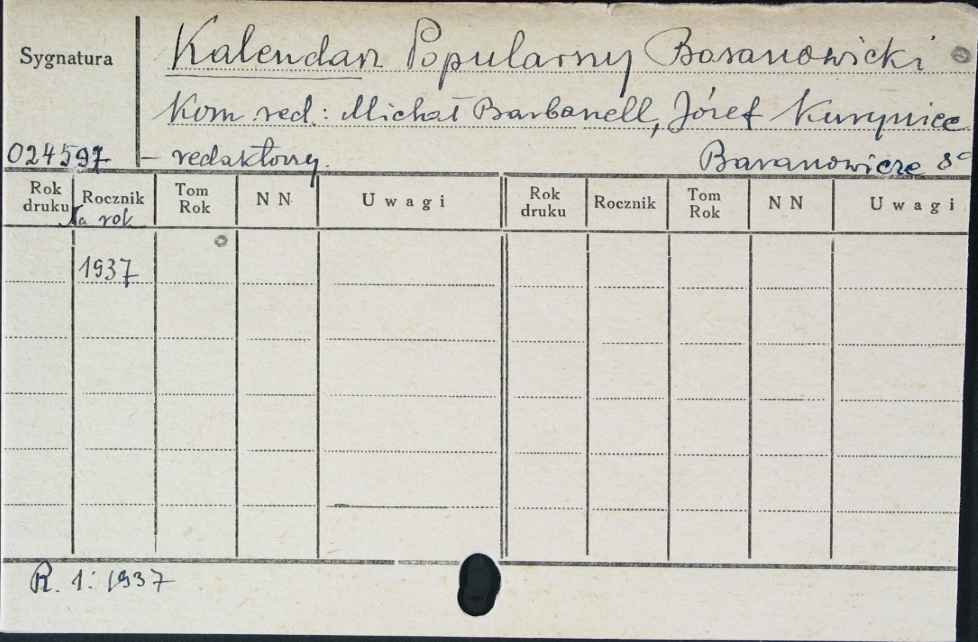 Sygnatura
Kalendarz Popularny Baranowicki
Kom. red.: Michał Barbanell, Józef Kuryniec
024597 – redaktorzy. Baranowicze 8°
Rok druku Rocznik Tom Rok N N Uwagi Rok druku Rocznik Tom Rok N N Uwagi
Na rok
1937
R. 1: 1937